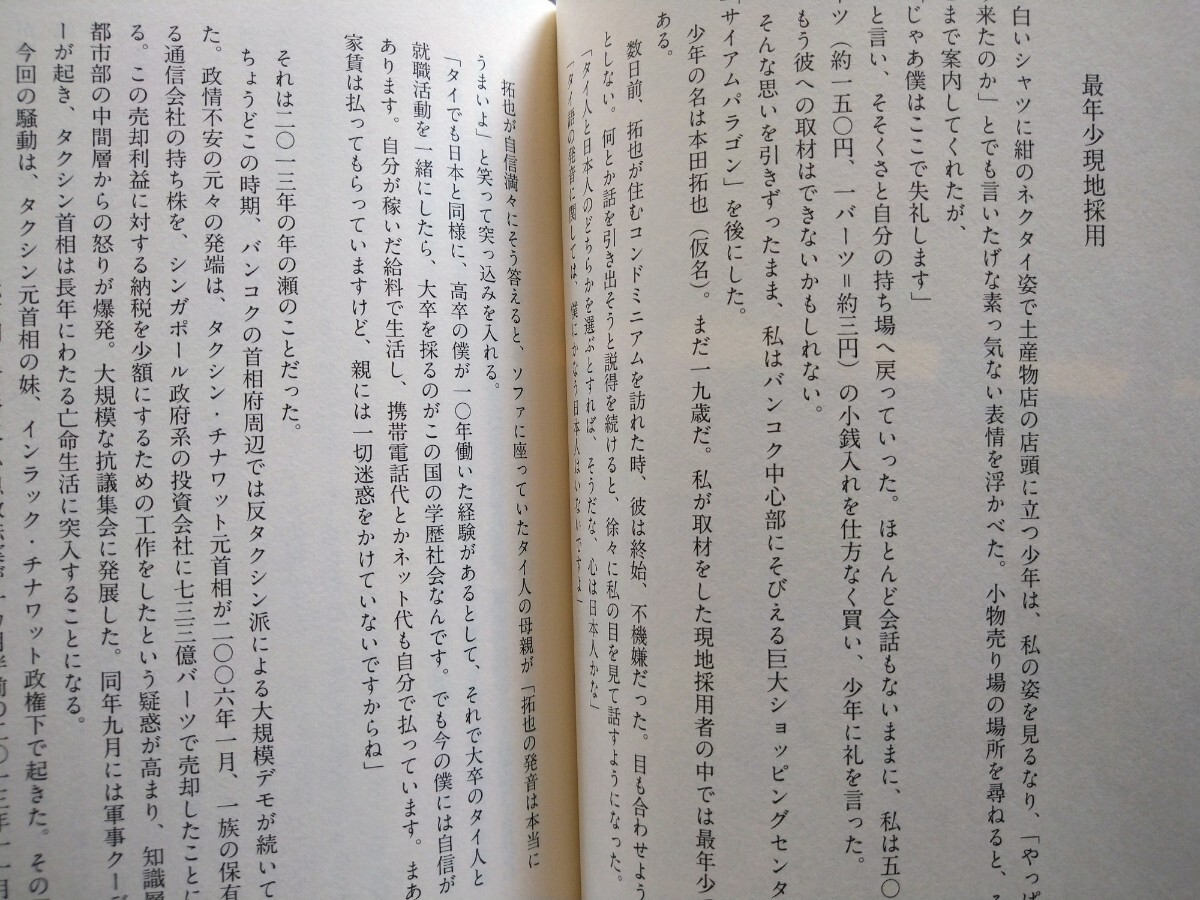 最年少現地採用
白いシャツに紺のネクタイ姿で土産物店の店頭に立つ少年は、私の姿を見るなり、「やっぱ
来たのか」とでも言いたげな素っ気ない表情を浮かべた。小物売り場の場所を尋ねると、
まで案内してくれたが、
じゃあ僕はここで失礼します」
と言い、そそくさと自分の持ち場へ戻っていった。ほとんど会話もないままに、私は五〇
ーツ（約一五〇円、一バーツ＝約三円）の小銭入れを仕方なく買い、少年に礼を言った。
もう彼への取材はできないかもしれない。
そんな思いを引きずったまま、私はバンコク中心部にそびえる巨大ショッピングセンタ
「サイアムパラゴン」を後にした。
少年の名は本田拓也（仮名）。まだ一九歳だ。私が取材をした現地採用者の中では最年少
ある。
数日前、拓也が住むコンドミニアムを訪れた時、彼は終始、不機嫌だった。目も合わせよう
としない。何とか話を引き出そうと説得を続けると、徐々に私の目を見て話すようになった。
「タイ人と日本人のどちらかを選ぶとすれば、そうだな、心は日本人かな」
「タイ語の発音に関しては、僕にかなう日本人はいないですよ」
拓也が自信満々にそう答えると、ソファに座っていたタイ人の母親が「拓也の発音は本当に
うまいよ」と笑って突っ込みを入れる。
「タイでも日本と同様に、高卒の僕が一〇年働いた経験があるとして、それで大卒のタイ人と
就職活動を一緒にしたら、大卒を採るのがこの国の学歴社会なんです。でも今の僕には自信が
あります。自分が稼いだ給料で生活し、携帯電話代とかネット代も自分で払っています。まあ
家賃は払ってもらっていますけど、親には一切迷惑をかけていないですからね」
それは二〇一三年の年の瀬のことだった。
ちょうどこの時期、バンコクの首相府周辺では反タクシン派による大規模デモが続いて
た。政情不安の元々の発端は、タクシン・チナワット元首相が二〇〇六年一月、一族の保有
る通信会社の持ち株を、シンガポール政府系の投資会社に七三三億バーツで売却したことに
る。この売却利益に対する納税を少額にするための工作をしたという疑惑が高まり、知識層
都市部の中間層からの怒りが爆発。大規模な抗議集会に発展した。同年九月には軍事クーデ
ーが起き、タクシン首相は長年にわたる亡命生活に突入することになる。
今回の騒動は、タクシン元首相の妹、インラック・チナワット政権下で起きた。その